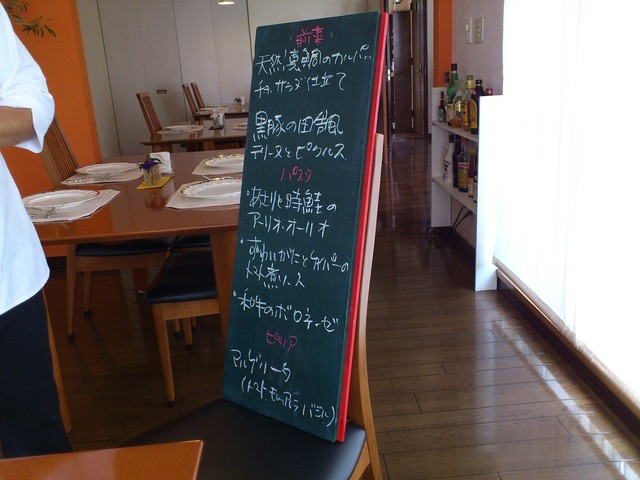 前菜
天然真鯛のカルパッ
チョ、サラダ仕立て
黒豚の田舎風
テリーヌとピクルス
パスタ
・あさりと時鮭の
アーリオ・オーリオ
・ずわいがにとケイパーの
トマト煮ソース
・和牛のボロネーゼ
ピッツア
マルゲリータ
(トマト、モッツアレラ、バジル)